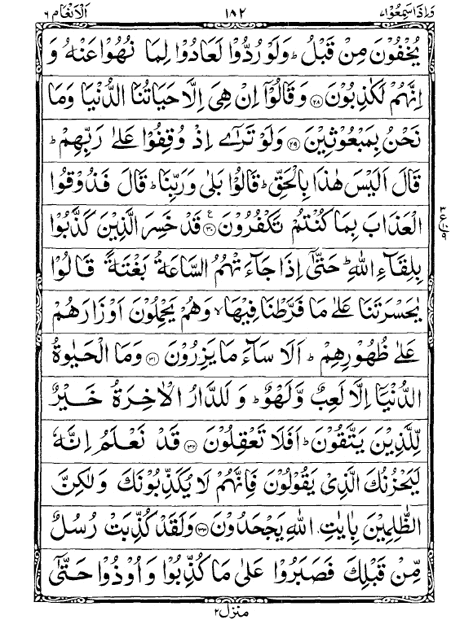 وَاِذَا سَمِعُوْا ٧ ١٨٢ اَلْاَنْعَام ٦
يُخْفُوْنَ مِنْ قَبْلُ ؕ وَلَوْ رُدُّوْا لَعَادُوْا لِمَا نُهُوْا عَنْهُ وَ
اِنَّهُمْ لَكٰذِبُوْنَ ﴿۲۸﴾ وَقَالُوْۤا اِنْ هِىَ اِلَّا حَيَاتُنَا الدُّنْيَا وَمَا
نَحْنُ بِمَبْعُوْثِيْنَ ﴿۲۹﴾ وَلَوْ تَرٰٓى اِذْ وُقِفُوْا عَلٰى رَبِّهِمْ ؕ
قَالَ اَلَيْسَ هٰذَا بِالْحَقِّ ؕ قَالُوْا بَلٰى وَرَبِّنَا ؕ قَالَ فَذُوْقُوا
الْعَذَابَ بِمَا كُنْتُمْ تَكْفُرُوْنَ ﴿۳۰﴾ قَدْ خَسِرَ الَّذِيْنَ كَذَّبُوْا
بِلِقَآءِ اللّٰهِ ؕ حَتّٰۤى اِذَا جَآءَتْهُمُ السَّاعَةُ بَغْتَةً قَالُوْا
يٰحَسْرَتَنَا عَلٰى مَا فَرَّطْنَا فِيْهَا ۙ وَهُمْ يَحْمِلُوْنَ اَوْزَارَهُمْ
عَلٰى ظُهُوْرِهِمْ ؕ اَلَا سَآءَ مَا يَزِرُوْنَ ﴿۳۱﴾ وَمَا الْحَيٰوةُ
الدُّنْيَاۤ اِلَّا لَعِبٌ وَّلَهْوٌ ؕ وَلَلدَّارُ الْاٰخِرَةُ خَيْرٌ
لِّلَّذِيْنَ يَتَّقُوْنَ ؕ اَفَلَا تَعْقِلُوْنَ ﴿۳۲﴾ قَدْ نَعْلَمُ اِنَّهٗ
لَيَحْزُنُكَ الَّذِىْ يَقُوْلُوْنَ فَاِنَّهُمْ لَا يُكَذِّبُوْنَكَ وَلٰكِنَّ
الظّٰلِمِيْنَ بِاٰيٰتِ اللّٰهِ يَجْحَدُوْنَ ﴿۳۳﴾ وَلَقَدْ كُذِّبَتْ رُسُلٌ
مِّنْ قَبْلِكَ فَصَبَرُوْا عَلٰى مَا كُذِّبُوْا وَاُوْذُوْا حَتّٰۤى
منزل ۲